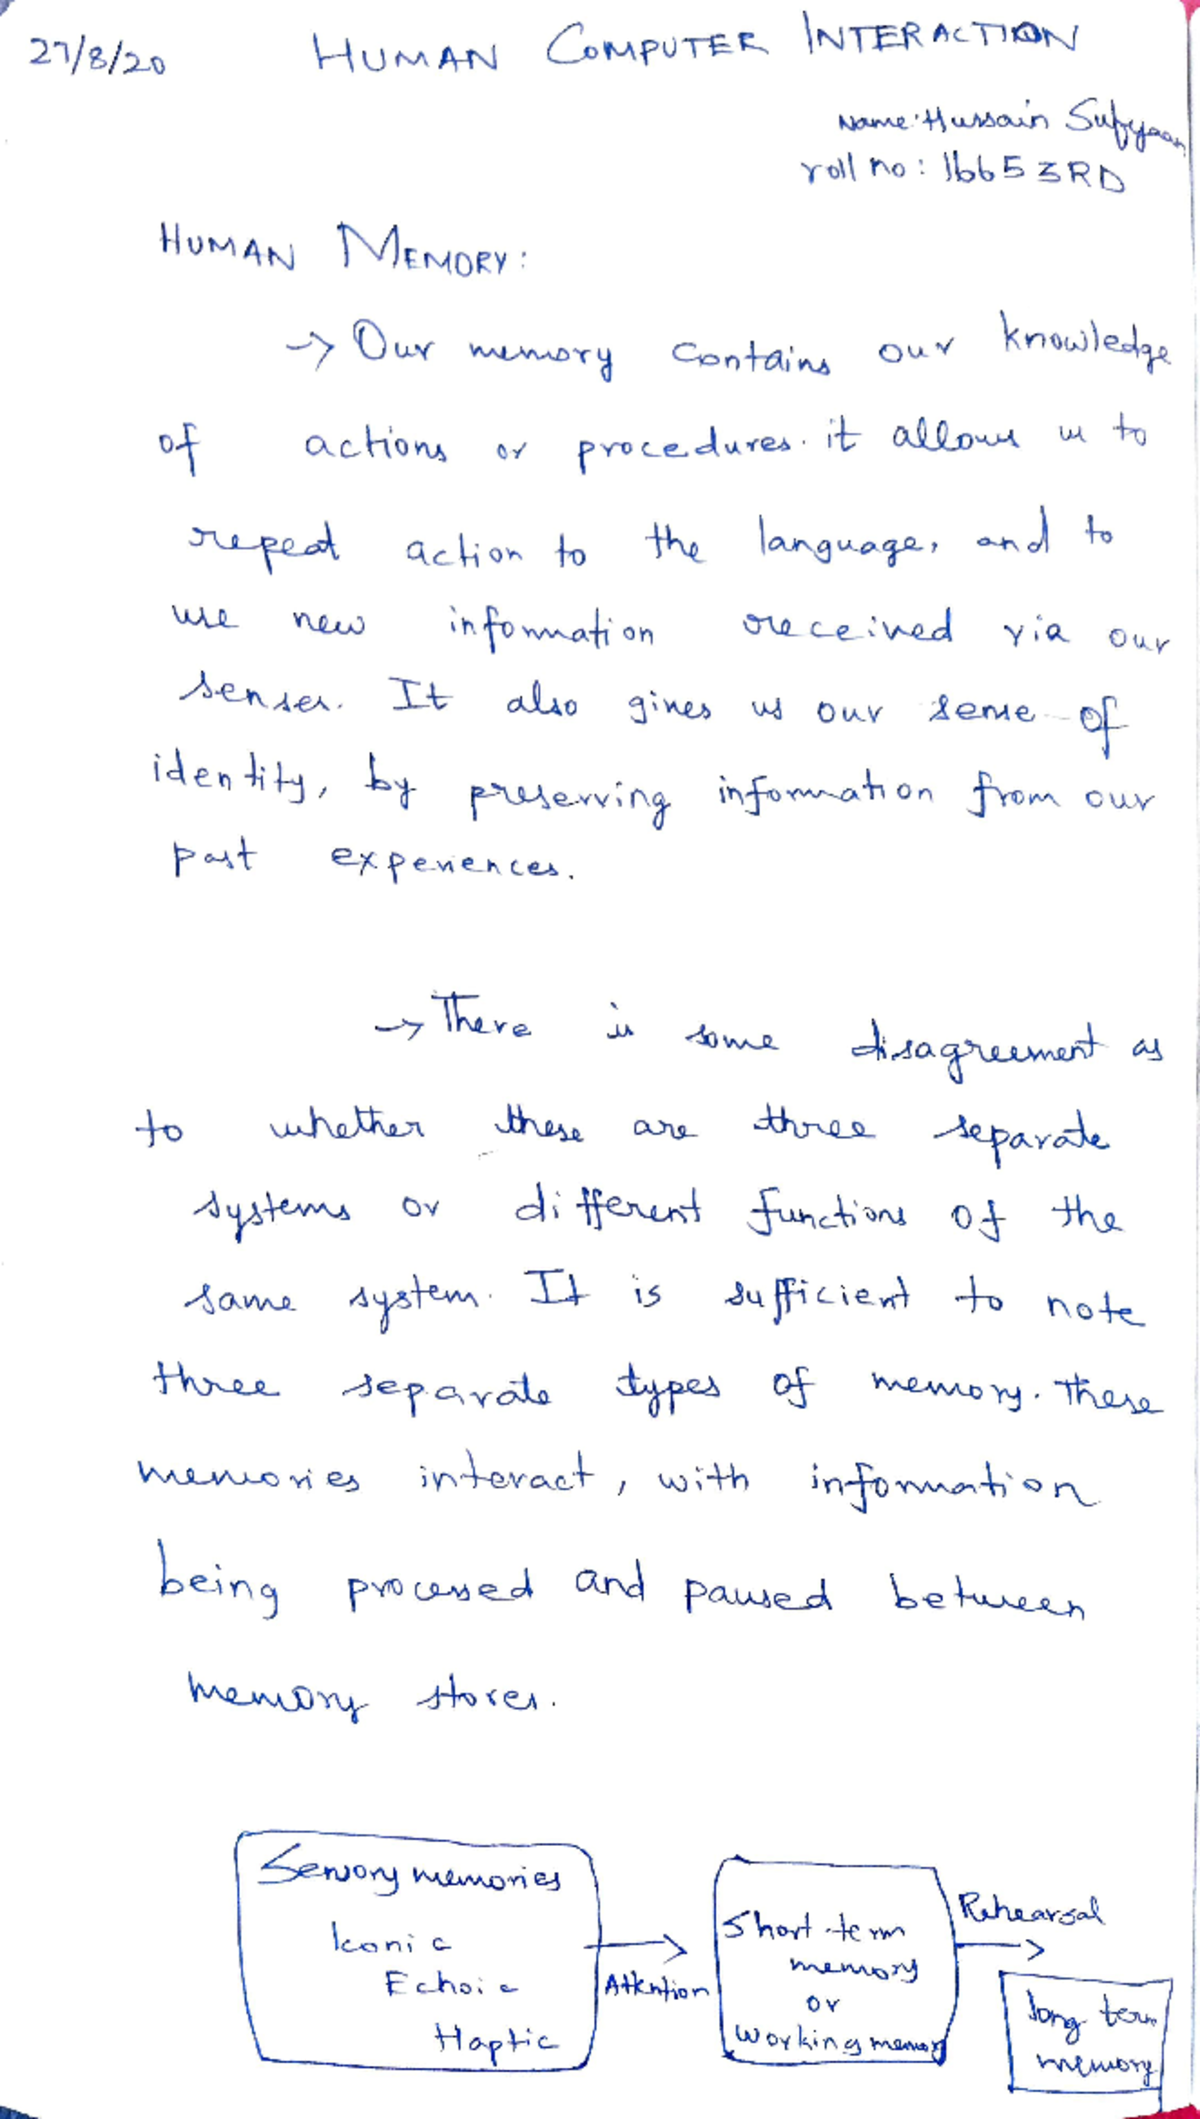 27/8/20 HUMAN COMPUTER INTERACTION
Name: Hussain Sufyaan
roll no: 16653RD
HUMAN MEMORY:
→ Our memory contains our knowledge
of actions or procedures. it allows us to
repeat action to the language, and to
use new information received via our
senses. It also gives us our sense of
identity, by preserving information from our
past experiences.
→ There is some disagreement as
to whether these are three separate
systems or different functions of the
same system. It is sufficient to note
three separate types of memory. These
memories interact, with information
being processed and paused between
memory stores.
Sensory memories
Iconic
Echoic
Haptic
Attention
Short-term
memory
or
Working memory
Rehearsal
long term
memory